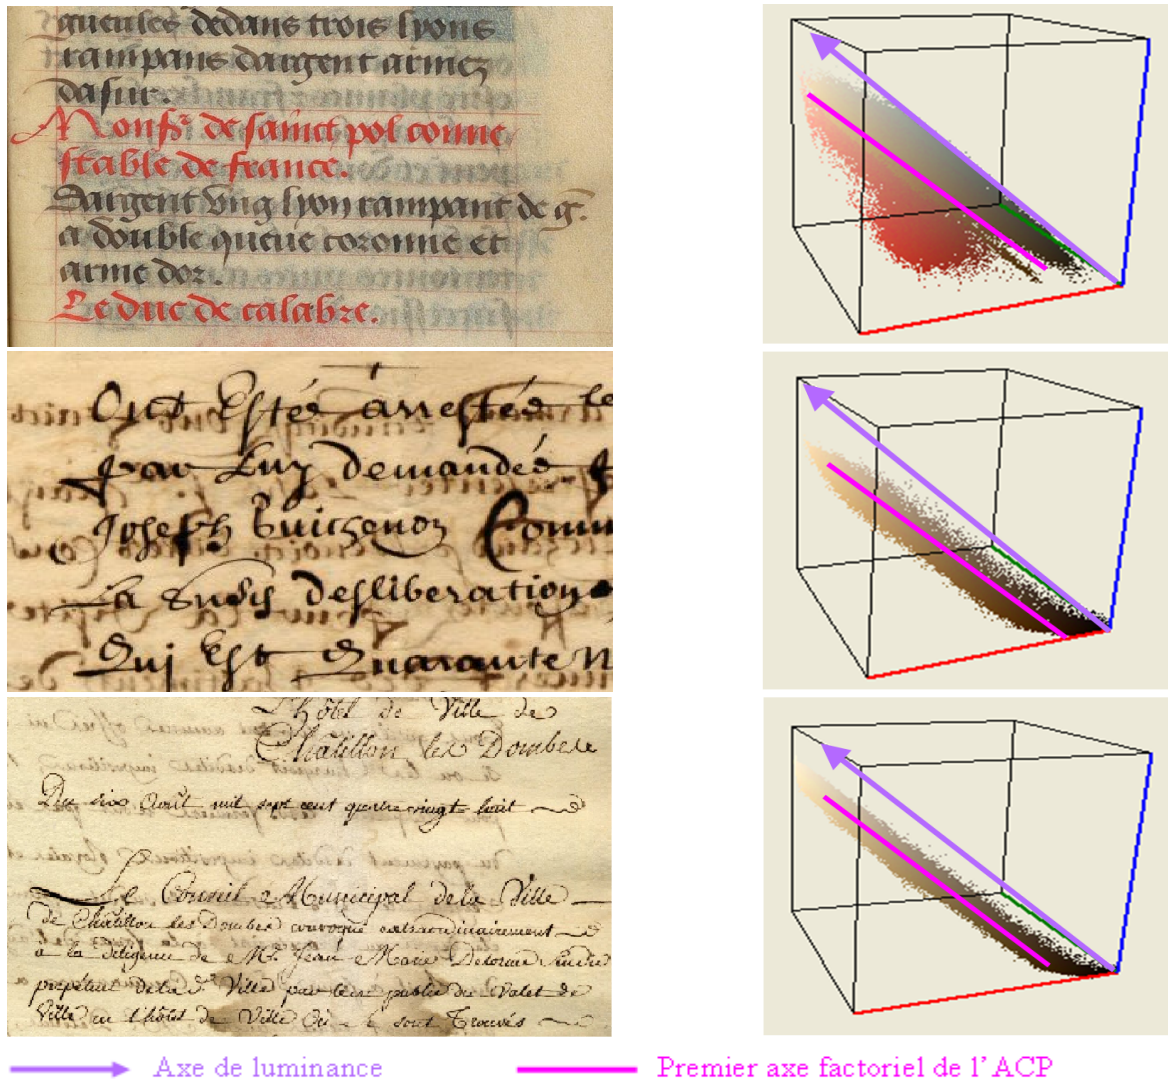 gueules dedans trois lyons
rampans dargent armez
dasur.
Monsr de sainct pol conne
stable de france.
Dargent ung lyon rampant de g.
a double queue coronne et
arme dor.
Le duc de calabre.
Ont Esté arrestées le
par Luy demandée
Joseph Guichenon Comm
La susds desliberation
Qui Est Quarante n
L'hôtel de Ville de
Châtillon les Dombes
Du six Août mil sept cent quatre vingt huit
Le Conseil Municipal de la Ville
de Châtillon les Dombes convoqué extraordinairement
à la diligence de Mr. Jean Marie Delorme Sindic
perpétuel de la de. Ville par le public du Valet de
Ville en l'hôtel de Ville Où se sont Trouvés
Axe de luminance
Premier axe factoriel de l'ACP